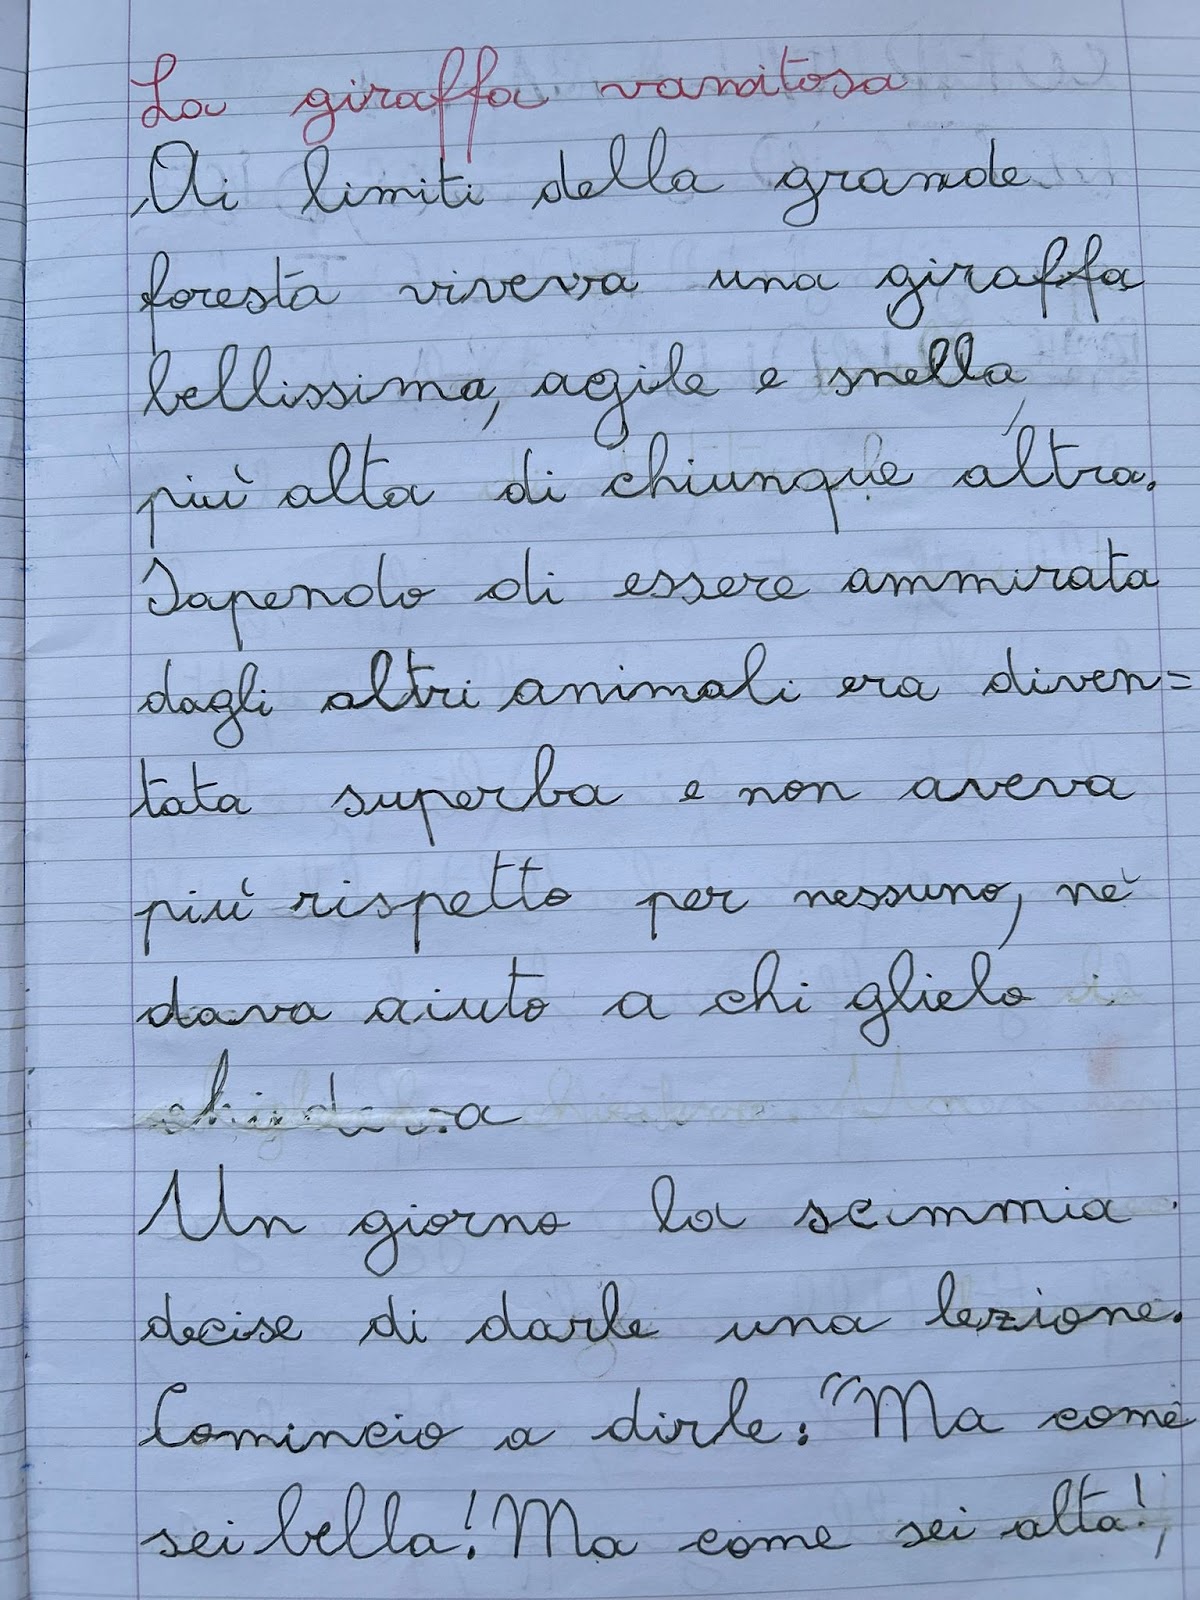 La giraffa vanitosa
Ai limiti della grande
foresta viveva una giraffa
bellissima, agile e snella,
più alta di chiunque altra.
Sapendo di essere ammirata
dagli altri animali era diven=
tata superba e non aveva
più rispetto per nessuno, nè
dava aiuto a chi glielo
chiedeva
Un giorno la scimmia
decise di darle una lezione.
Comincio a dirle: "Ma come
sei bella! Ma come sei alta!